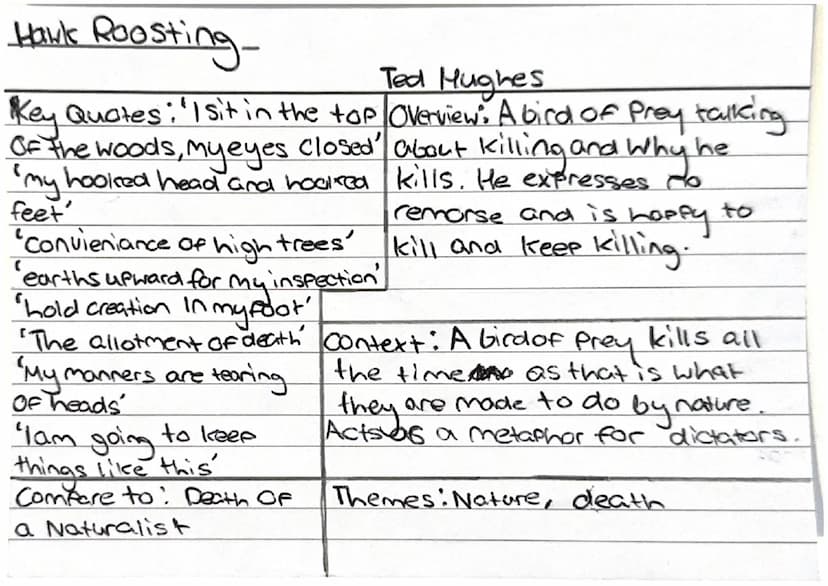 Hawk Roosting-
Ted Hughes
Key Quotes: 'I sit in the top
of the woods, my eyes closed'
'my hooked head and hooked
feet'
'convieniance of high trees'
'earths upward for my inspection'
'hold creation in my foot'
'The allotment of death'
'My manners are tearing
of heads'
'I am going to keep
things like this'
Compare to: Death of
a Naturalist
Overview: A bird of prey talking
about killing and why he
kills. He expresses no
remorse and is happy to
kill and keep killing.
Context: A bird of prey kills all
the time as that is what
they are made to do by nature.
Acts as a metaphor for dictators.
Themes: Nature, death